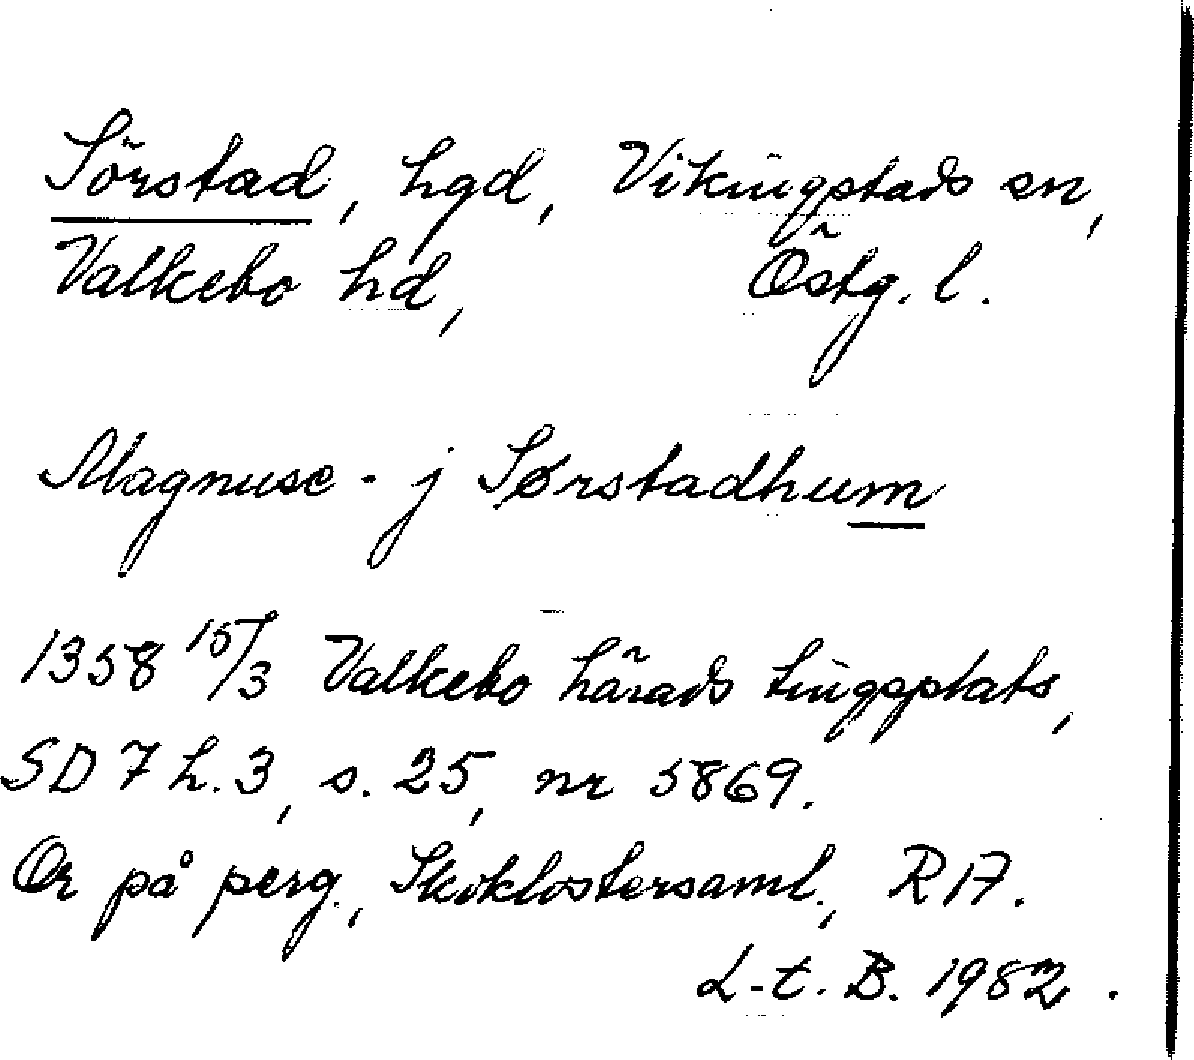 Sörstad, hgd, Vikingstads sn,
Valkebo hd, Östg. l.
Magnuse - j Sørstadhum
1358 15/3 Valkebo härads tingsplats,
SD 7 h. 3, s. 25, nr 5869.
Or på perg., Skoklostersaml., RA.
L-t. B. 1982.